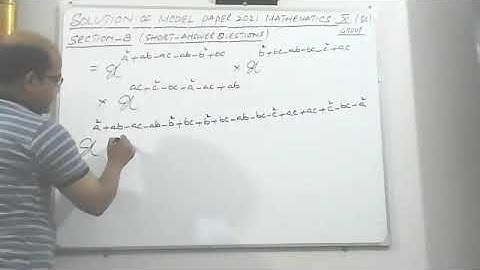 SOLUTION OF MODEL PAPER 2021 MATHEMATICS X (SC)
GROUP
SECTION-B (SHORT-ANSWER QUESTIONS)
= x^{a²+ab-ac-ab-b²+bc} × x^{b²+bc-ab-bc-c²+ac}
× x^{ac+c²-bc-a²-ac+ab}
x^{a²+ab-ac-ab-b²+bc+b²+bc-ab-bc-c²+ac+ac+c²-bc-a²}